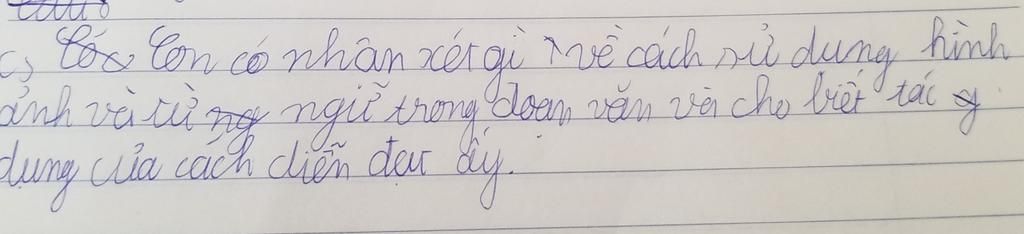 c) Con có nhận xét gì về cách sử dụng hình
ảnh và từ ngữ trong đoạn văn và cho biết tác
dụng của cách diễn đạt ấy.